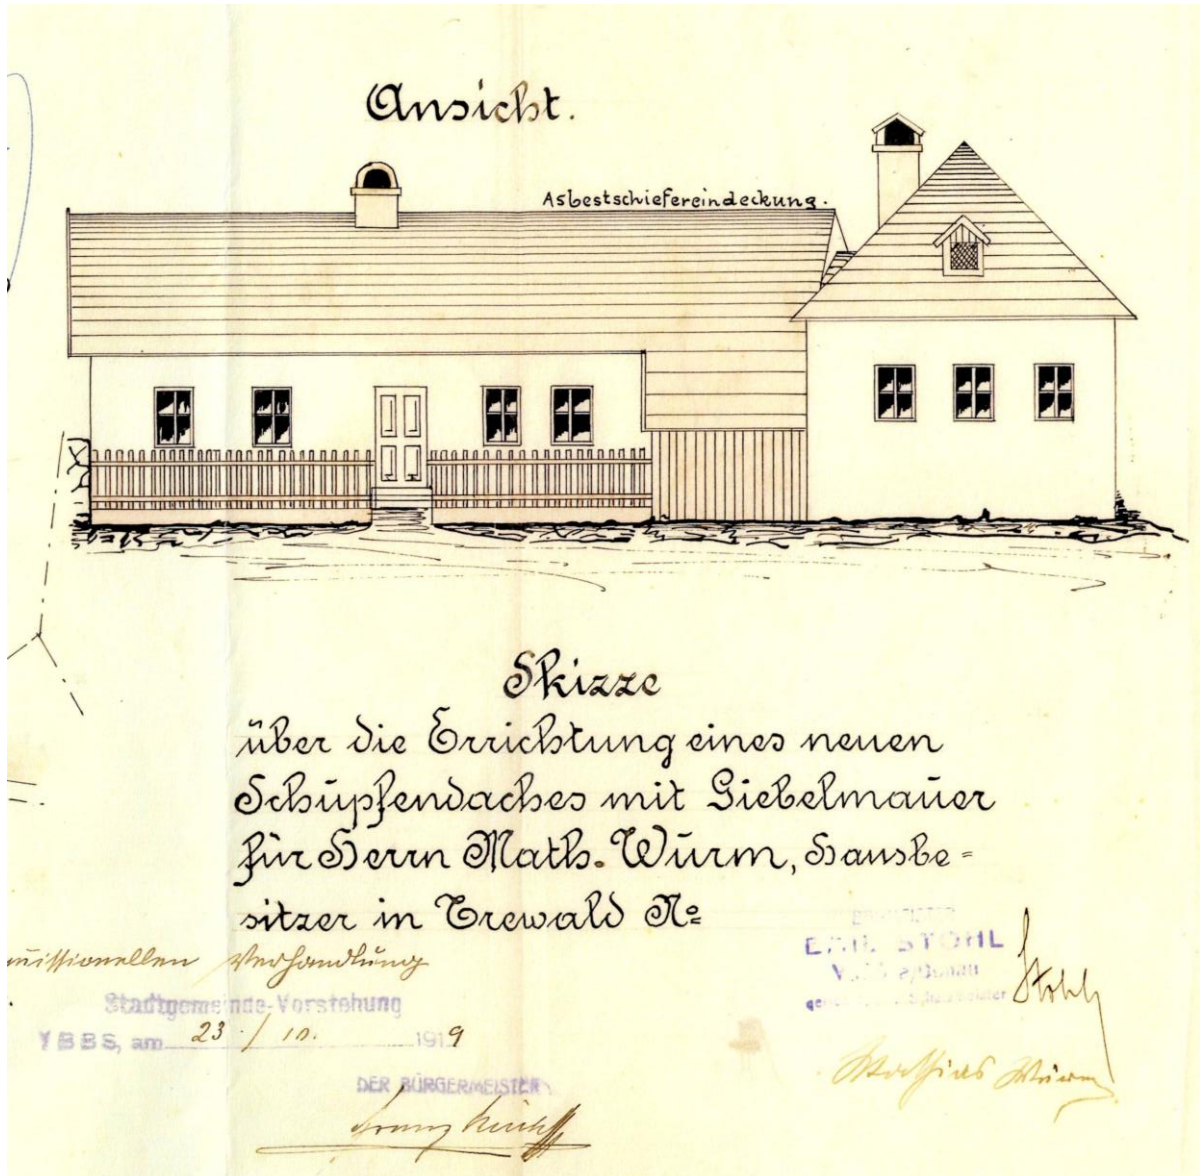 Ansicht.
Asbestschiefereindeckung.
Skizze
über die Errichtung eines neuen
Schupfendaches mit Giebelmauer
für Herrn Math. Wurm, Hausbe=
sitzer in Trewald No
Verhandlung
Stadtgemeinde-Vorstehung
YBBS, am 23./10. 1919
DER BÜRGERMEISTER
BAUMEISTER
EMIL STOHL
Stohl
Mathias Wurm